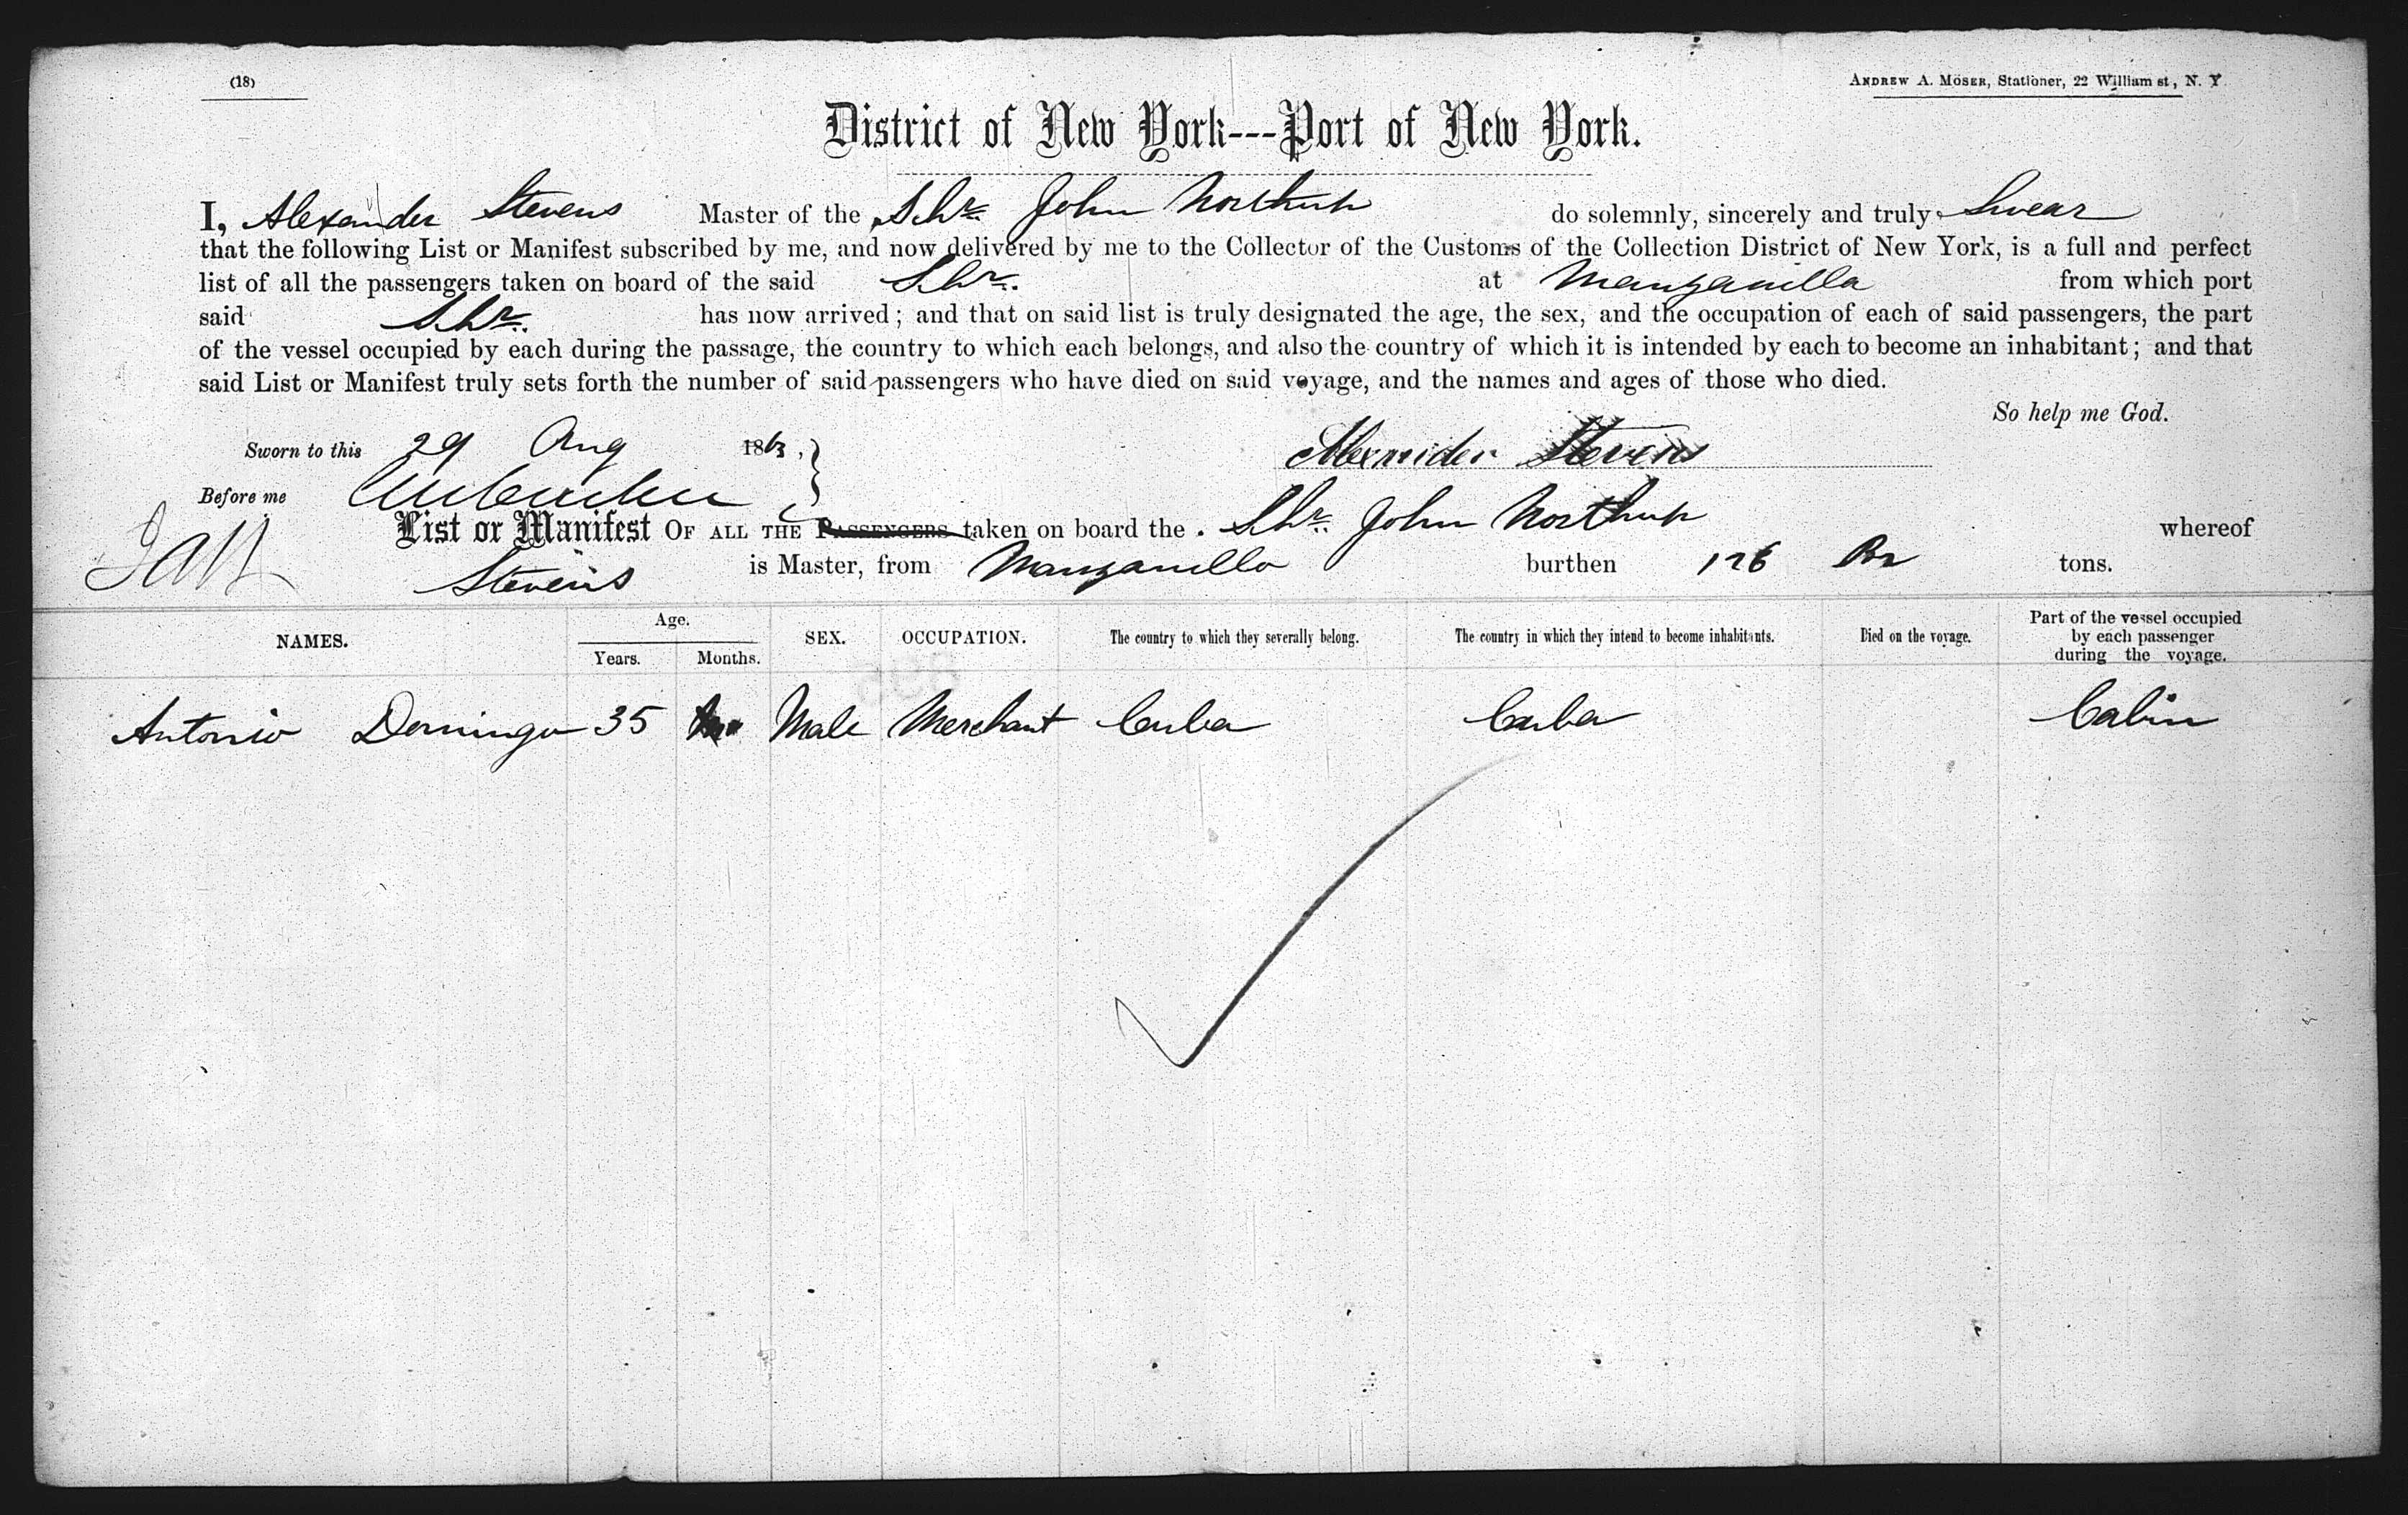 (18)
ANDREW A. MOSER, Stationer, 22 William st, N. Y.
District of New York---Port of New York.
I, Alexander Stevens Master of the Schr. John Northrup do solemnly, sincerely and truly Swear
that the following List or Manifest subscribed by me, and now delivered by me to the Collector of the Customs of the Collection District of New York, is a full and perfect
list of all the passengers taken on board of the said Schr. at Manzanilla from which port
said Schr. has now arrived; and that on said list is truly designated the age, the sex, and the occupation of each of said passengers, the part
of the vessel occupied by each during the passage, the country to which each belongs, and also the country of which it is intended by each to become an inhabitant; and that
said List or Manifest truly sets forth the number of said passengers who have died on said voyage, and the names and ages of those who died.
So help me God.
Sworn to this 29 Aug 1863, Alexander Stevens
Before me
List or Manifest OF ALL THE PASSENGERS taken on board the Schr. John Northrup whereof
Stevens is Master, from Manzanillo burthen 126 tons.
NAMES. Age. Years. Months. SEX. OCCUPATION. The country to which they severally belong. The country in which they intend to become inhabitants. Died on the voyage. Part of the vessel occupied by each passenger during the voyage.
Antonio Domingo 35 Male Merchant Cuba Cuba Cabin